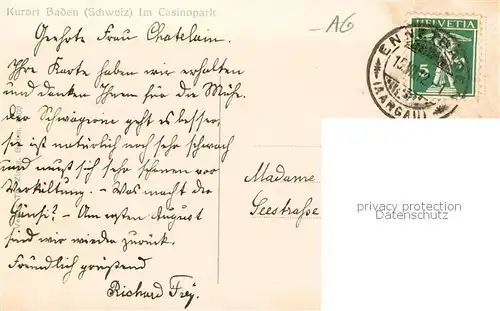 Kurort Baden (Schweiz) Im Casinopark
AG
Geehrte Frau Chatelain.
Ihre Karte haben wir erhalten
und danken Ihnen für die Mühe.
Der Schwägerin geht es besser,
sie ist natürlich noch sehr schwach
und muß sich sehr schonen vor
Verkältung. - Was macht die
Hansi? - Am ersten August
sind wir wieder zurück.
Freundlich grüssend
Richard Frey.
HELVETIA
5
(AARGAU)
Madame
Seestraße
privacy protection
Datenschutz